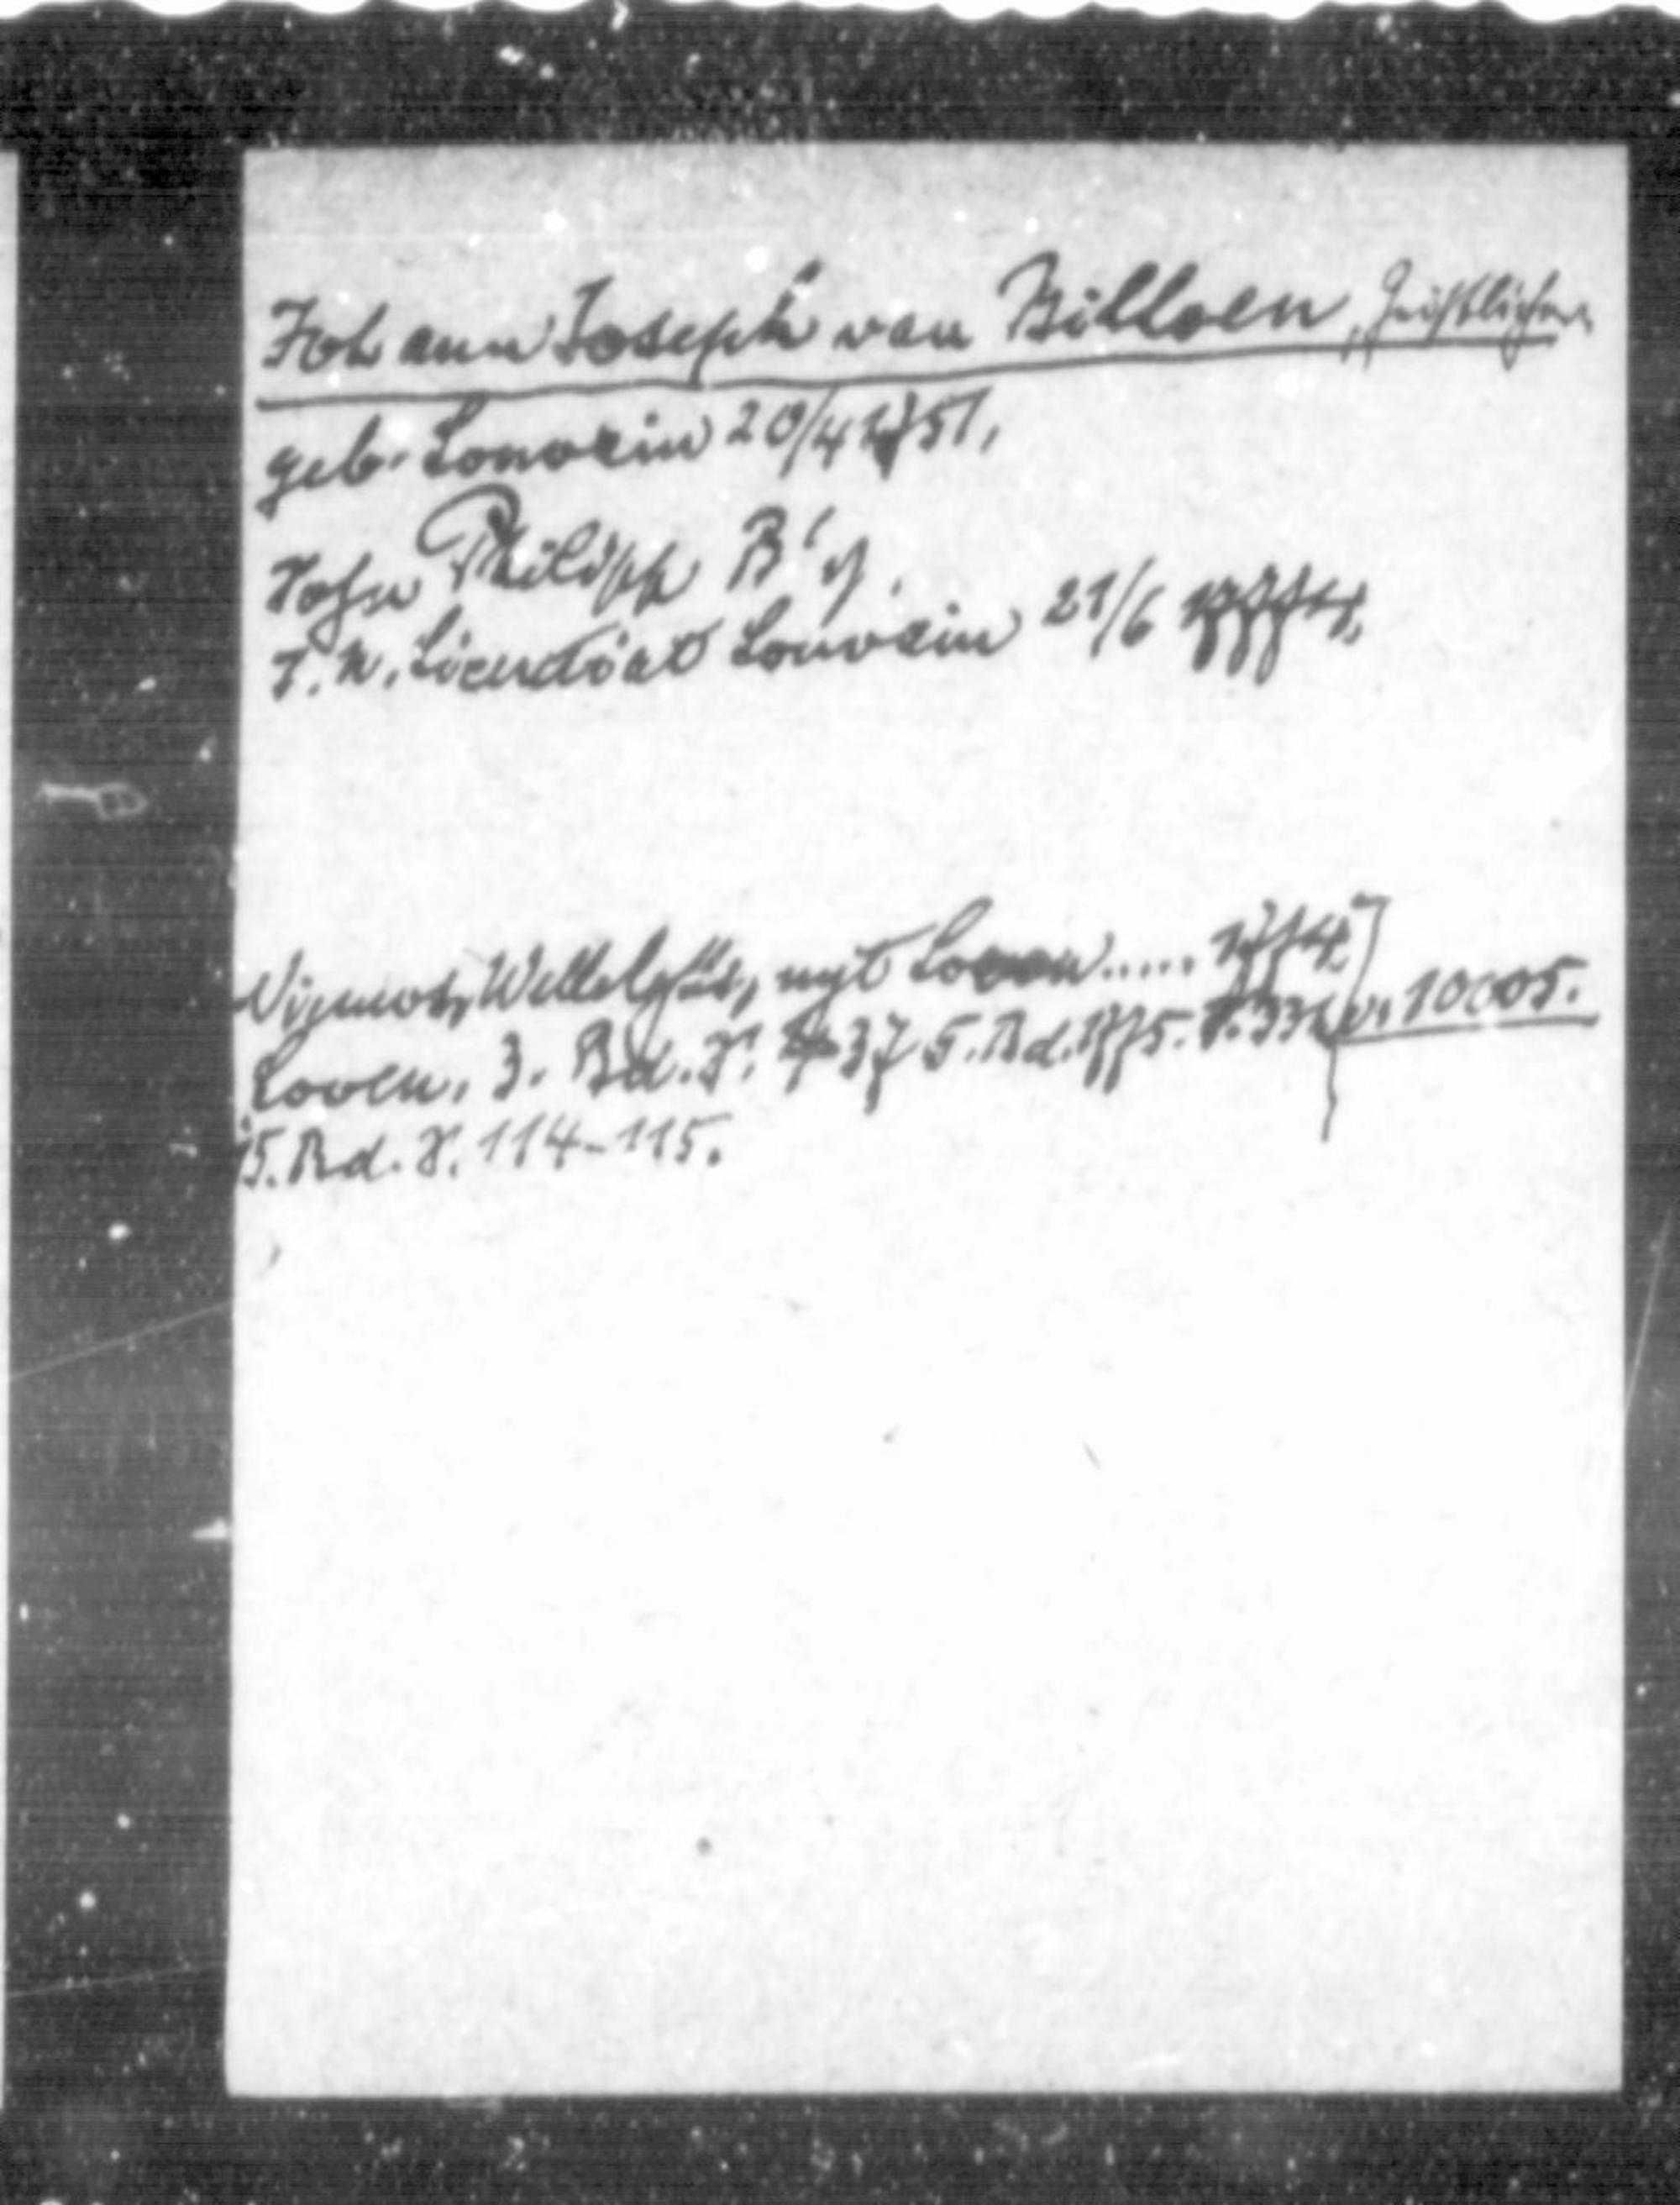 Johann Joseph van Billoen, Geistlicher
geb. Louvain 20/4 1751,
Sohn Philipp B's.
T. N. Licentiat Louvain 21/6 1774,
uyt Loven..... 1774
Loven. 3. Bd. S. 37 5. Bd. 1775. S. 10005.
15. Bd. S. 114-115.